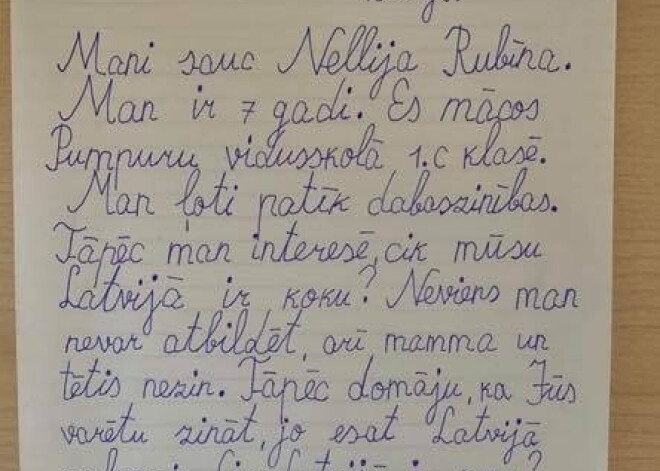 Mani sauc Nellija Rubīna.
Man ir 7 gadi. Es mācos
Pumpuru vidusskolā 1.c klasē.
Man ļoti patīk dabaszinības.
Tāpēc man interesē, cik mūsu
Latvijā ir koku? Neviens man
nevar atbildēt, arī mamma un
tētis nezin. Tāpēc domāju, ka Jūs
varētu zināt, jo esat Latvijā